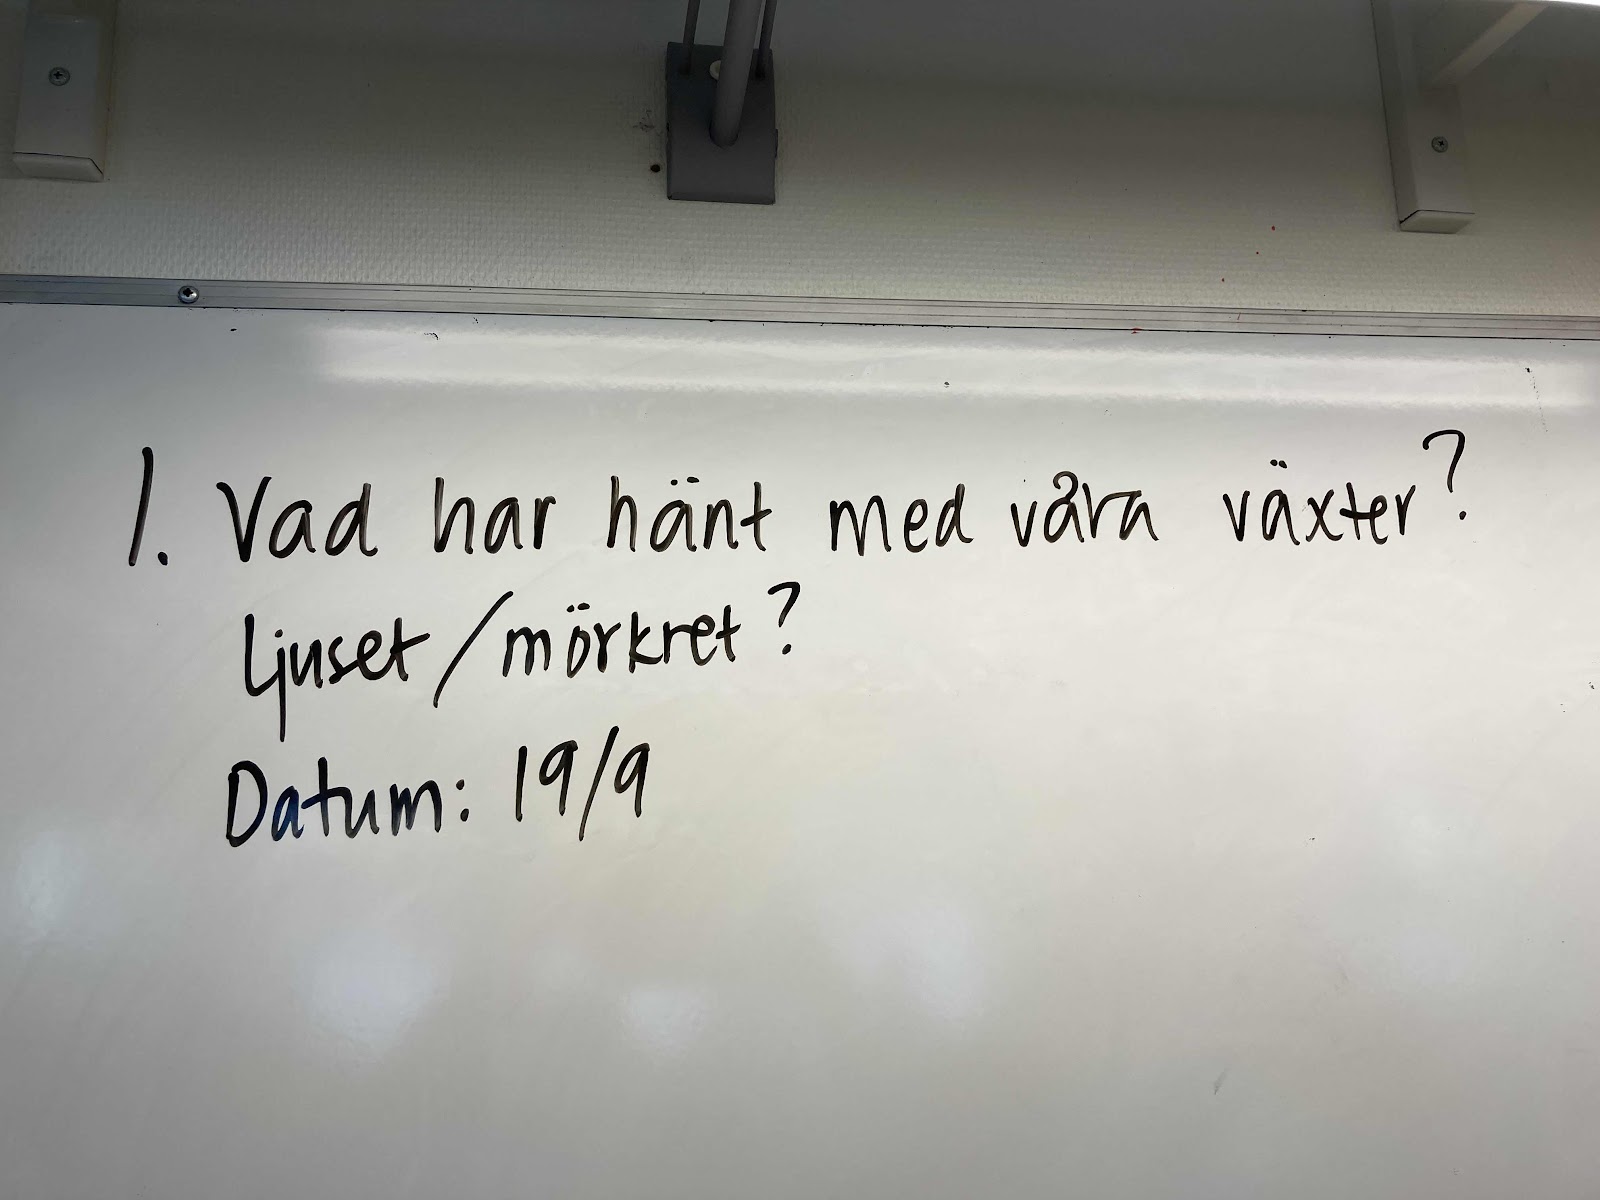 1. Vad har hänt med våra växter?
Ljuset/mörkret?
Datum: 19/9